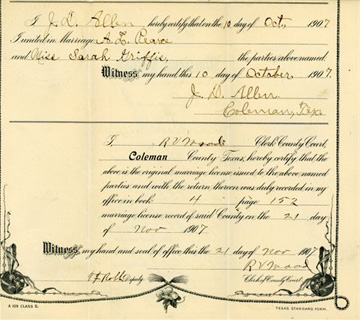 I J. D. Allen hereby certify that on the 10 day of Oct, 1907
I united in Marriage A. L. Pearce
and Miss Sarah Griffis, the parties above named.
Witness my hand this 10 day of October, 1907.
J. D. Allen
Coleman, Tex
I, R V Wood Clerk County Court,
Coleman County Texas, hereby certify that the
above is the original marriage license issued to the above named
parties and with the return thereon was duly recorded in my
office in book 4 page 152
marriage license record of said County on the 21 day
of Nov 1907.
Witness my hand and seal of office this 21 day of Nov 1907
R V Wood
Deputy Clerk of County Court
A 929 CLASS B. TEXAS STANDARD FORM.